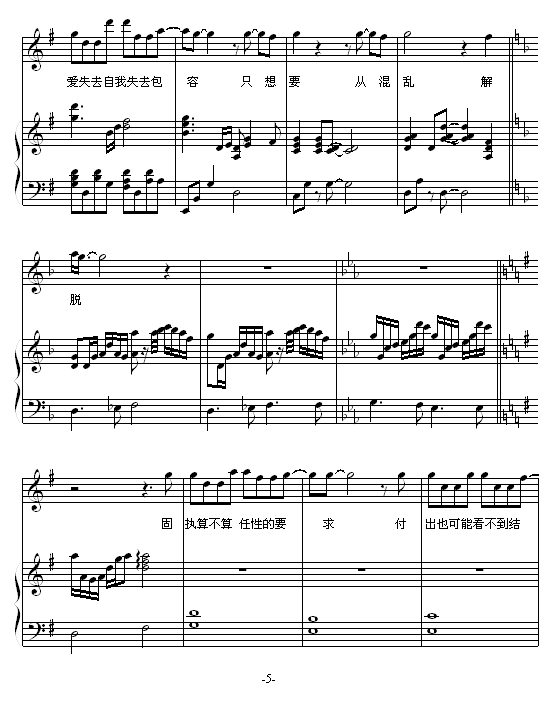 爱失去自我失去包 容 只 想 要 从 混 乱 解
脱
固 执算不算 任性的要 求 付 出也可能看不到结
-5-